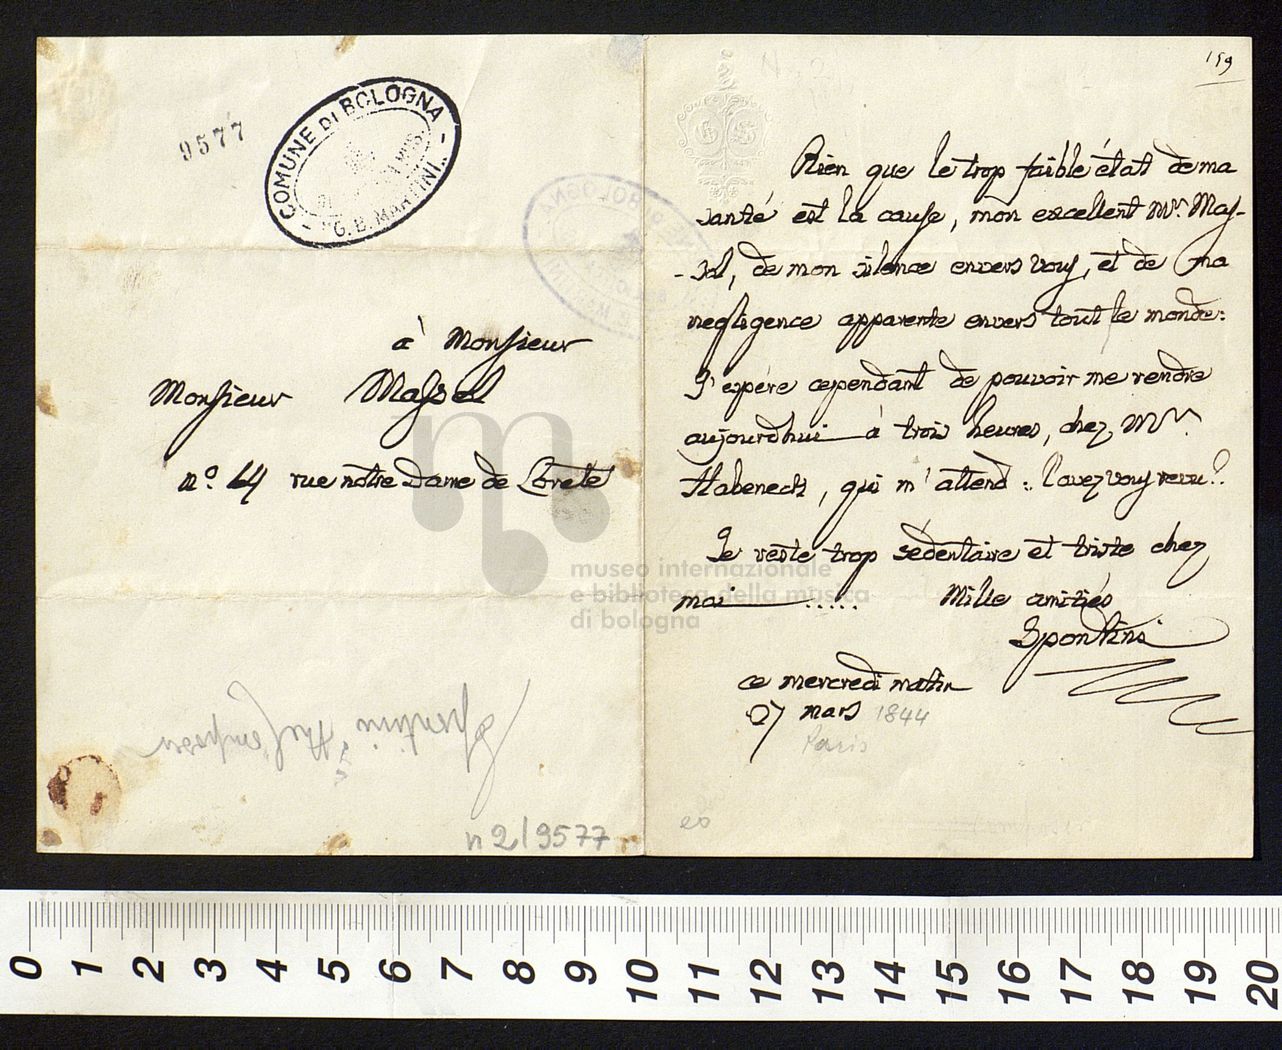 9577
COMUNE DI BOLOGNA
"G. B. MARTINI"
à Monsieur
Monsieur Massol
nº 44 rue nôtre Dame de Lorete
Spontini
n 2/9577
159
Rien que le trop faible état de ma
santé est la cause, mon excellent Mr. Mas-
-sol, de mon silence envers vous, et de ma
negligence apparente envers tout le monde:
J'espére cependant de pouvoir me rendre
aujourdhui à trois heures, chez Mr.
Habeneck, qui m'attend: l'avez vous revu?
Je reste trop sédentaire et triste chez
moi ..... Mille amitiés
Spontini
ce mercredi matin
27 mars 1844
Paris
museo internazionale
e biblioteca della musica
di bologna
0 1 2 3 4 5 6 7 8 9 10 11 12 13 14 15 16 17 18 19 20